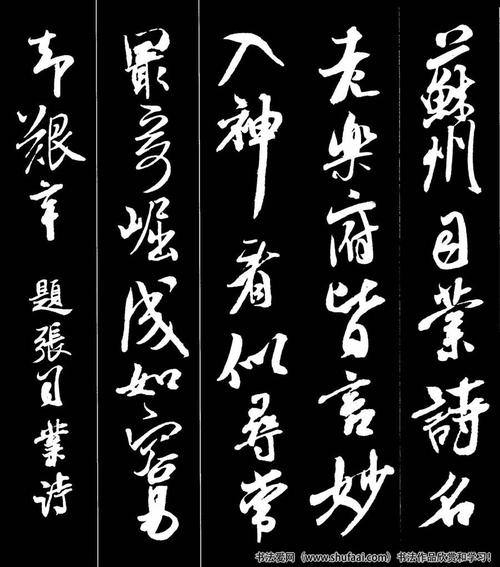 蘇州司業詩名
老樂府皆言妙
入神看似尋常
最奇崛成如容易
却艱辛 題張司業詩
书法爱网（www.shufaai.com）书法作品欣赏和学习！